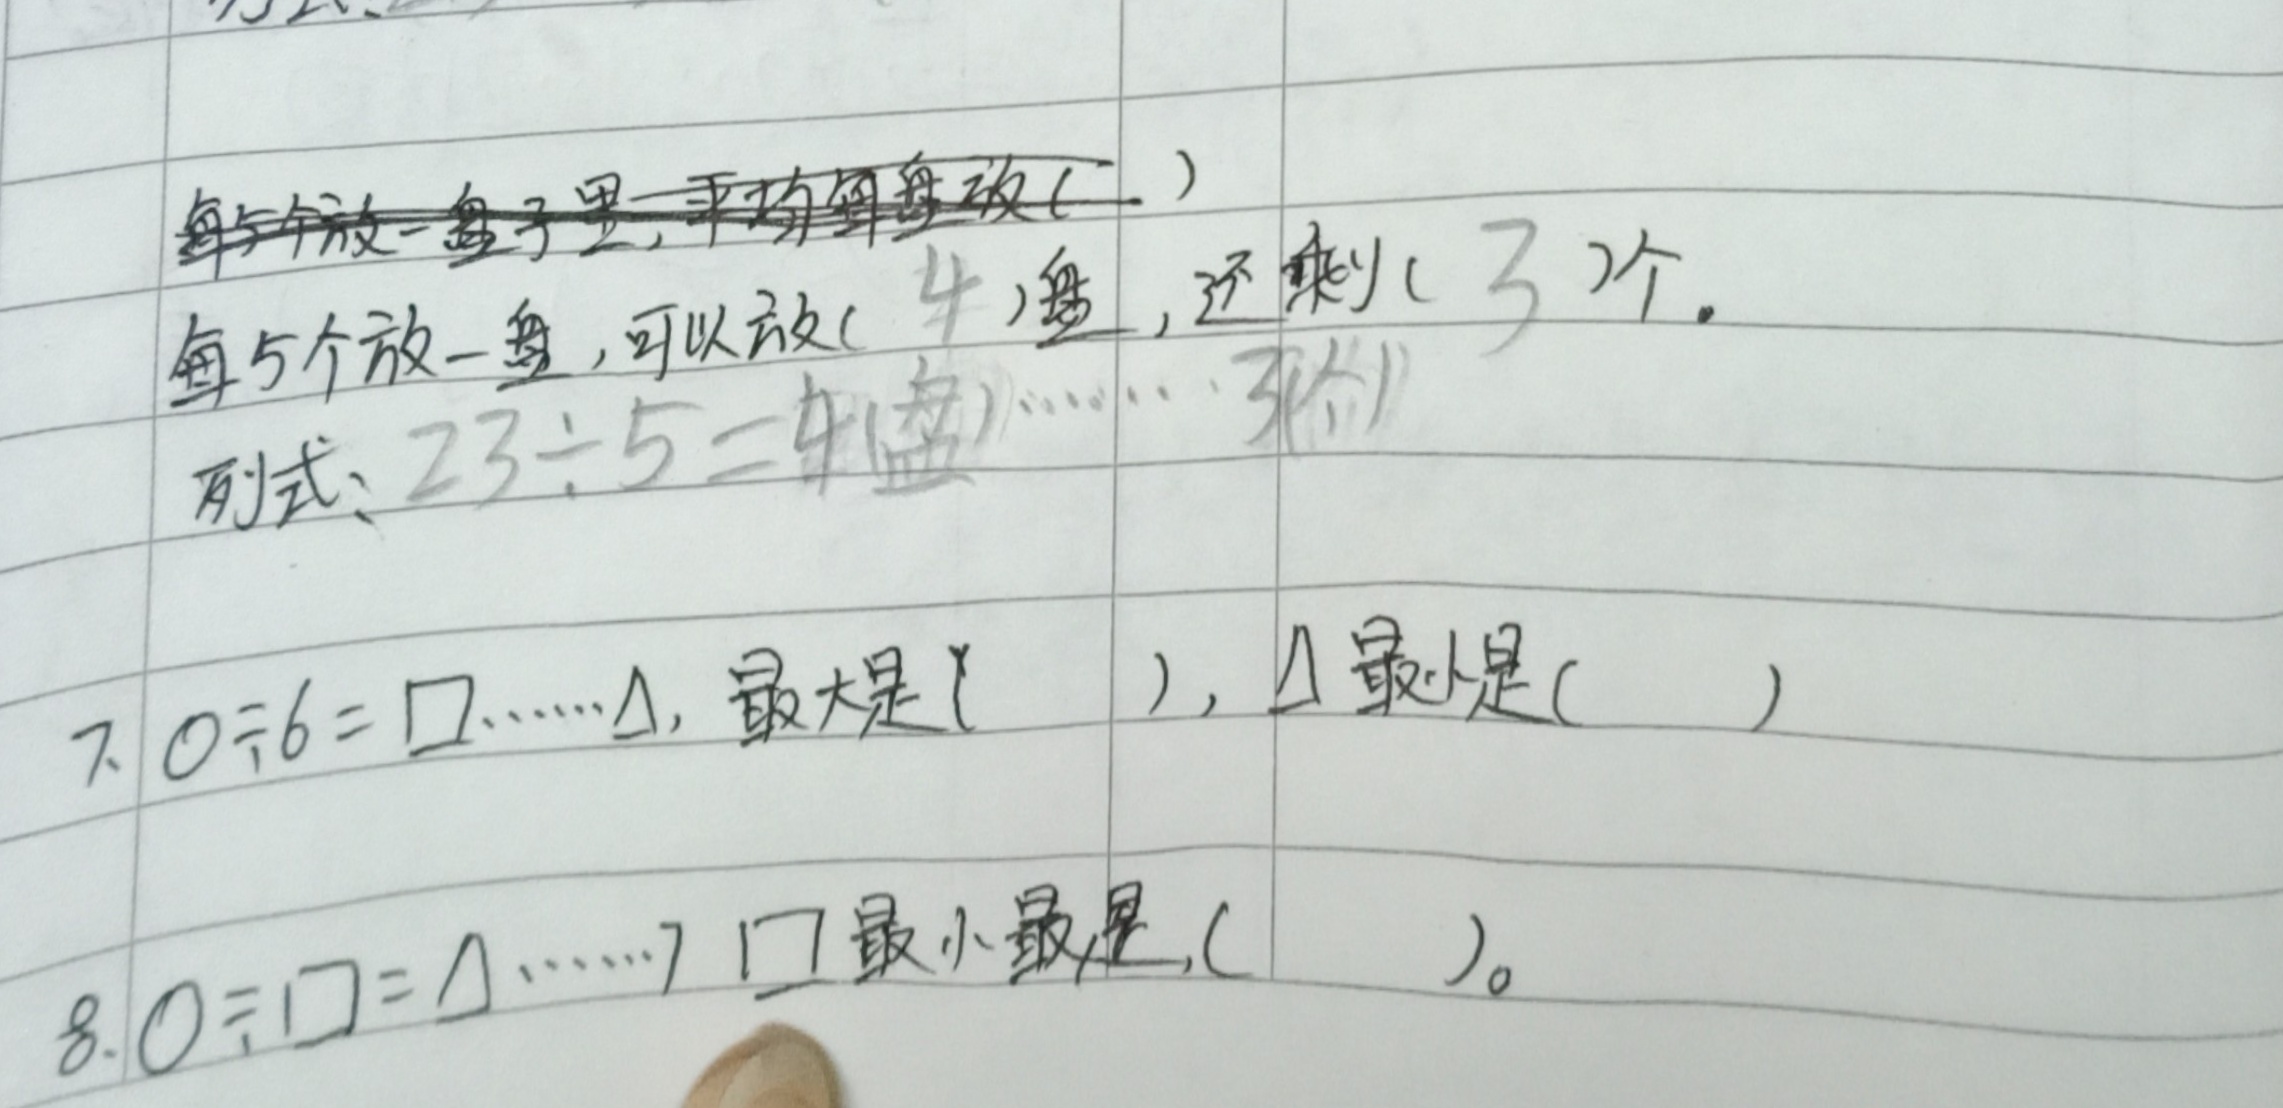 每5个放一盘子里,平均每盘放( )
每5个放一盘,可以放( 4 )盘,还剩( 3 )个.
列式:23÷5=4(盘)……3(个)
7. O÷6=□……△,最大是( ),△最小是( )
8. O÷□=△……7 □最小最是,( )。